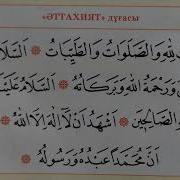 «ӘТТАХИЯТ» дұғасы
لِلّٰهِ وَالصَّلَوَاتُ وَالطَّيِّبَاتُ * اَلسَّلَا
وَرَحْمَةُ اللهِ وَبَرَكَاتُهُ * اَلسَّلَامُ عَلَيْنَ
الصَّالِحِينَ * اَشْهَدُ اَنْ لَا اِلٰهَ اِلَّا اللهُ
اَنَّ مُحَمَّدًا عَبْدُهُ وَرَسُولُهُ